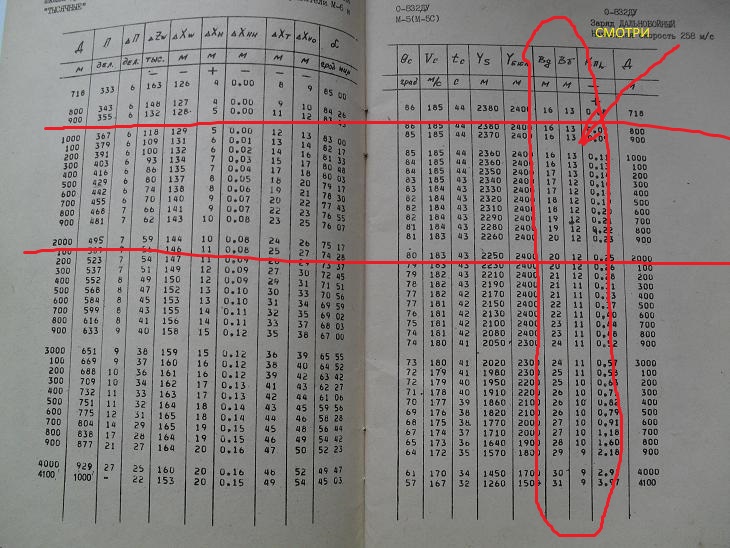 "ТЫСЯЧНЫЕ"
Д П ΔП ΔZw ΔXw ΔXн ΔXнн ΔXт ΔXно α
м дел. дел. тыс. м м м м м град мин
− + −
718 333 6 163 126 4 0.00 8 9 85 00
800 343 6 148 127 4 0.00 9 10 84 26
900 355 6 132 128 5 0.00 11 12
1000 367 6 118 129 5 0.00 12 13 83 00
100 379 6 109 131 6 0.01 13 14 82 17
200 391 6 100 132 6 0.02 14 15 81 33
300 403 6 93 134 7 0.03 15 16 80 48
400 416 6 86 135 7 0.04 17 18 80 03
500 429 6 80 137 8 0.05 18 19 79 17
600 442 6 74 138 8 0.06 19 20 78 30
700 455 6 70 140 9 0.07 20 22 77 43
800 468 7 66 141 9 0.07 22 23 76 55
900 481 7 62 143 10 0.08 23 25 76 07
2000 495 7 59 144 10 0.08 24 26 75 17
100 7 146 11 0.08 25 27 74 28
200 523 7 54 147 11 26 28 73 37
300 537 7 51 149 12 0.09 27 30 72 45
400 552 8 49 150 12 0.09 29 31 71 51
500 568 8 47 152 13 0.10 30 33 70 56
600 584 8 45 153 13 0.10 31 34 69 59
700 599 8 43 155 14 0.11 32 35 69 02
800 616 8 41 156 14 0.11 33 37 68 03
900 633 9 40 158 15 0.12 35 38 67 00
3000 651 9 38 159 15 0.12 36 39 65 55
100 669 9 37 160 16 0.12 38 40 64 52
200 688 10 36 161 16 0.12 39 42 63 42
300 709 10 34 162 17 0.13 41 43 62 27
400 732 11 33 163 17 0.13 42 44 61 06
500 751 11 32 164 18 0.14 43 45 59 56
600 775 12 31 165 18 0.14 44 46 58 28
700 804 14 29 165 19 0.15 45 48 56 44
800 838 17 28 164 19 0.15 46 49 54 42
900 877 21 27 164 20 0.16 47 50 52 23
4000 929 27 25 160 20 0.16 46 52 49 47
4100 1000 - 22 153 20 0.15 49 54 45 03
О-832ДУ
М-5(М-5С)
О-832ДУ
Заряд ДАЛЬНОБОЙНЫЙ
СМОТРИ
скорость 258 м/с
θс Vс tс Ys Yбюл Вд Вб Д
град м/с с м м м м м
86 185 44 2380 2400 16 13 718
86 185 44 2380 2400 16 13 800
85 185 44 2370 2400 16 13 0.09 900
85 185 44 2360 2400 16 13 0.11 1000
84 185 44 2360 2400 16 13 0.13 100
84 185 44 2350 2400 17 13 200
83 185 43 2340 2400 17 12 300
83 184 43 2330 2400 17 12 400
82 184 43 2320 2400 18 12 500
82 184 43 2310 2400 18 12 600
82 184 43 2290 2400 19 12 0.21 700
81 184 43 2280 2400 19 12 0.22 800
81 183 43 2260 2400 20 12 0.23 900
80 183 43 2250 2400 20 12 0.25 2000
79 183 43 2230 2400 20 12 0.26 100
79 182 43 2210 2400 21 12 0.28 200
78 182 43 2190 2400 21 11 300
77 182 42 2170 2400 21 11 400
77 181 42 2150 2400 22 11 500
76 181 42 2130 2400 22 11 600
75 181 42 2100 2400 23 11 700
74 181 42 2080 2400 23 11 800
74 180 41 2050 2400 24 11 0.52 900
73 180 41 2020 2300 24 11 0.57 3000
72 179 41 1980 2300 25 11 100
72 179 40 1950 2200 25 10 0.63 200
71 178 40 1910 2200 26 10 300
70 177 39 1860 2100 26 10 0.82 400
69 176 38 1820 2100 26 10 0.79 500
68 175 38 1770 2000 27 10 0.91 600
67 174 37 1710 2000 27 10 1.18 700
65 173 36 1640 1900 28 10 1.60 800
64 172 35 1570 1800 29 9 2.18 900
61 170 34 1450 1700 30 9 4000
57 167 32 1260 1500 31 9 3.97 4100